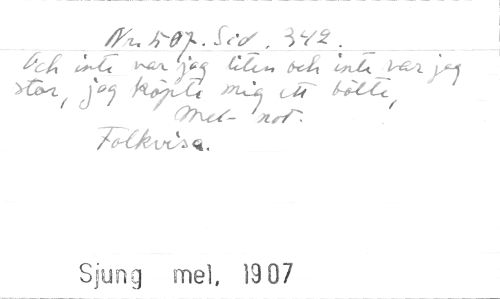 Nr. 507. Sid. 342.
Och inte var jag liten och inte var jag
stor, jag köpte mig ett bälte,
Mel- not.
Folkvisa.
Sjung mel, 1907